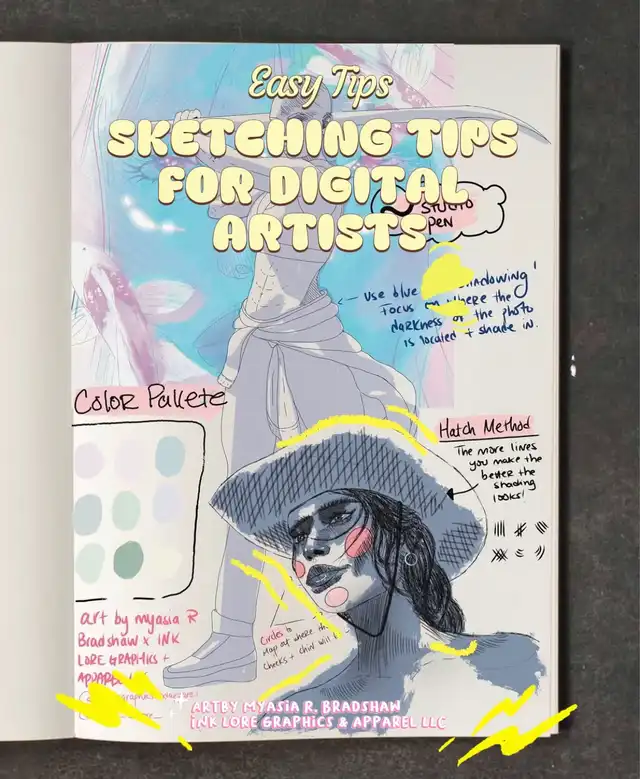 Easy Tips
SKETCHING TIPS
FOR DIGITAL
ARTISTS
STUDIO
PEN
use blue
focus on where the
darkness of the photo
is located + shade in.
Color Pallete
Hatch Method
The more lines
you make the
better the
shading
looks!
Circles to
map out where the
cheeks + chin will
art by myasia R
Bradshaw x INK
LORE GRAPHICS +
ART BY MYASIA R. BRADSHAW
INK LORE GRAPHICS & APPAREL LLC